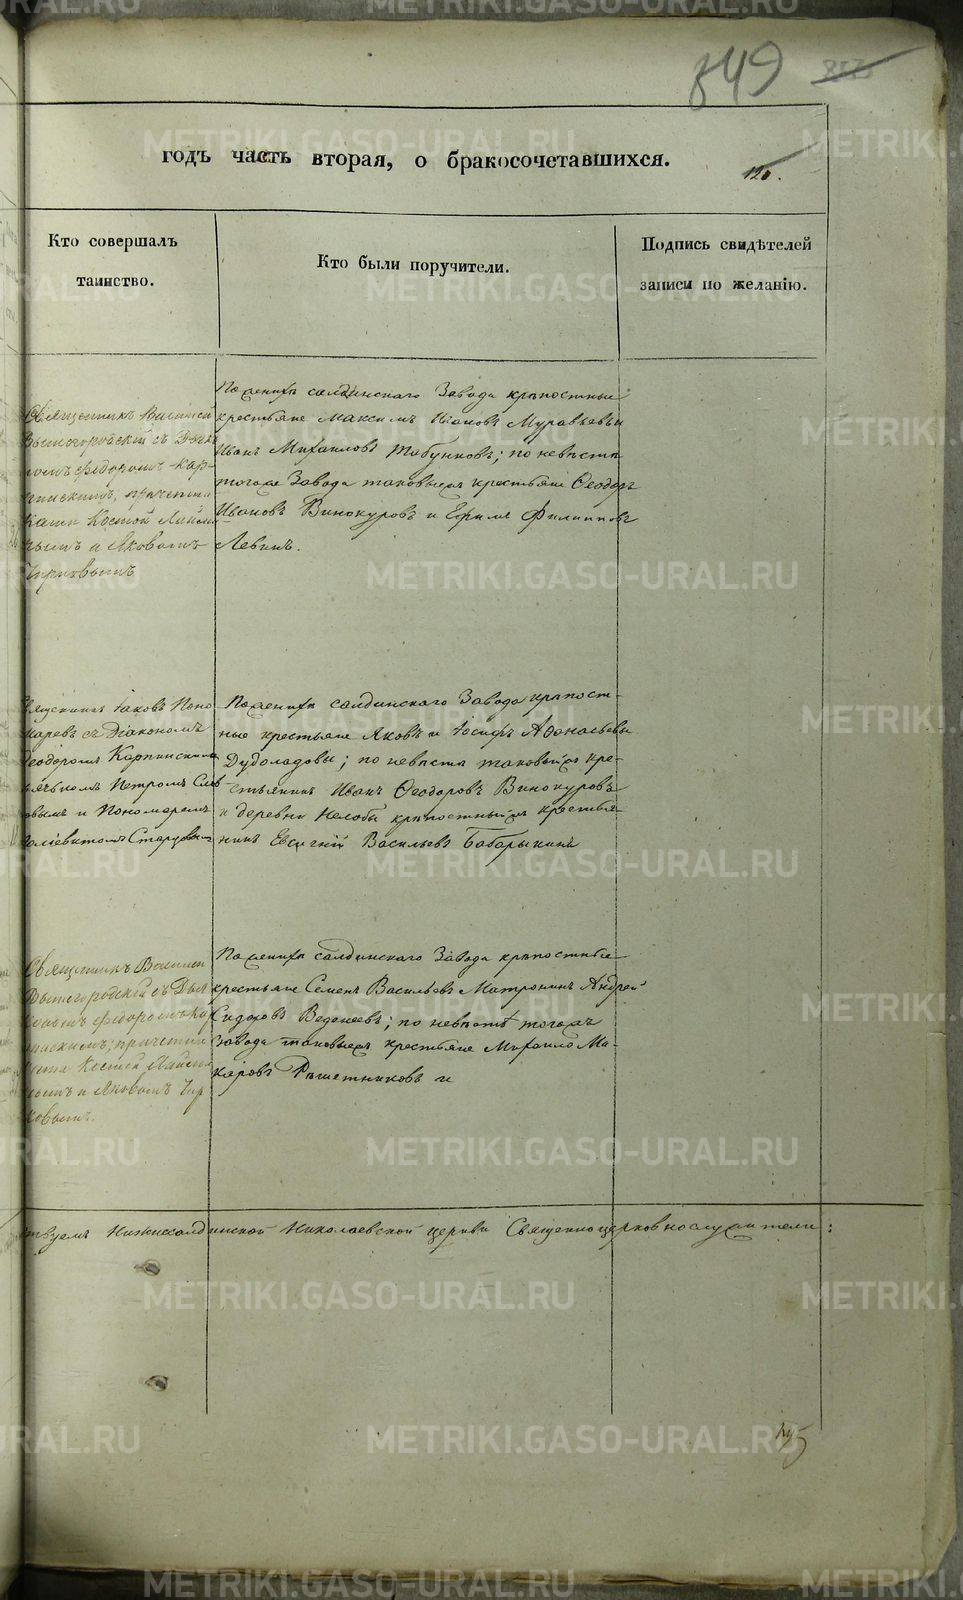 849
годъ часть вторая, о бракосочетавшихся.
120.
Кто совершалъ
таинство.
Кто были поручители.
Подпись свидѣтелей
записи по желанію.
Священникъ Василій
Вышегородскій съ Дья
кономъ Ѳедоромъ Кар
пинскимъ, причетни
ками Костой
нымъ и Яковомъ
Чирковымъ
По женихѣ салдинскаго Завода крѣпостные
крестьяне Максимъ Ивановъ Муравьевъ и
Иванъ Михаиловъ Табунковъ; по невѣстѣ
тогоже Завода таковыеже крестьяне Ѳеодоръ
Ивановъ Винокуровъ и Ефимъ Филипповъ
Левинъ.
Священникъ Іаковъ Поно
маревъ съ Діакономъ
Ѳеодоромъ Карпинскимъ
дьячкомъ Петромъ Слов
и Пономаремъ
Старцовымъ
По женихѣ салдинскаго Завода крѣпост-
ные крестьяне Яковъ и Іосифъ Аѳонасьевы
Дудоладовы; по невѣстѣ таковыйже кре-
стьянинъ Иванъ Ѳеодоровъ Винокуровъ
и деревни Нелобы крѣпостныйже крестья-
нинъ Евсигній Васильевъ Бабарыкинъ
Священникъ Василій
Вышегородскій съ Дья
кономъ Ѳедоромъ Кар
пинскимъ, причетни
ками Костой
нымъ и Яковомъ Чир
ковымъ.
По женихѣ салдинскаго Завода крѣпостные
крестьяне Семенъ Васильевъ Матронинъ Андрей
Сидоровъ Веденеевъ; по невѣстѣ тогожъ
Завода таковыежъ крестьяне Михаило Ма-
каровъ Рѣшетниковъ и
Нижнесалдинской Николаевской церкви Священноцерковнослужители:
METRIKI.GASO-URAL.RU